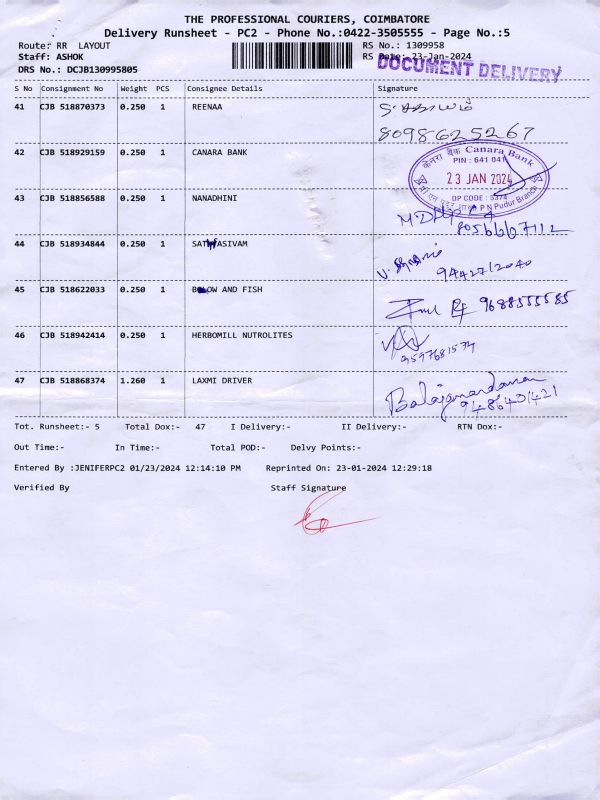 THE PROFESSIONAL COURIERS, COIMBATORE
Delivery Runsheet - PC2 - Phone No.:0422-3505555 - Page No.:5
Route: RR LAYOUT RS No.: 1309958
Staff: ASHOK RS Date: 23-Jan-2024
DRS No.: DCJB130995805
DOCUMENT DELIVERY
S No Consignment No Weight PCS Consignee Details Signature
41 CJB 518870373 0.250 1 REENAA
8098625267
42 CJB 518929159 0.250 1 CANARA BANK
केनरा बैंक Canara Bank
PIN : 641 041
23 JAN 2024
DP CODE : 5374
P N Pudur Branch
43 CJB 518856588 0.250 1 NANADHINI
8056667112
44 CJB 518934844 0.250 1
9442712040
45 CJB 518622033 0.250 1 AND FISH
9688555585
46 CJB 518942414 0.250 1 HERBOMILL NUTROLITES
9597681574
47 CJB 518868374 1.260 1 LAXMI DRIVER
Balajanardanan
Tot. Runsheet:- 5 Total Dox:- 47 I Delivery:- II Delivery:- RTN Dox:-
Out Time:- In Time:- Total POD:- Delvy Points:-
Entered By :JENIFERPC2 01/23/2024 12:14:10 PM Reprinted On: 23-01-2024 12:29:18
Verified By Staff Signature